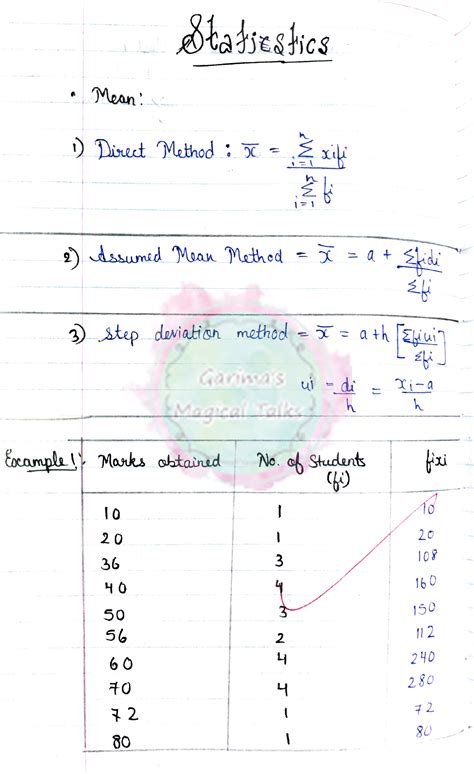 Statistics
• Mean:
1) Direct Method : x̄ = \frac{\sum_{i=1}^{n} xifi}{\sum_{i=1}^{n} fi}
2) Assumed Mean Method = x̄ = a + \frac{Σfidi}{Σfi}
3) step deviation method = x̄ = a+h [\frac{Σfiui}{Σfi}]
ui = \frac{di}{h} = \frac{xi-a}{h}
Garima's
Magical Talks
Example 1: Marks obtained No. of Students (fi) fixi
10 1 10
20 1 20
36 3 108
40 4 160
50 3 150
56 2 112
60 4 240
70 4 280
72 1 72
80 1 80